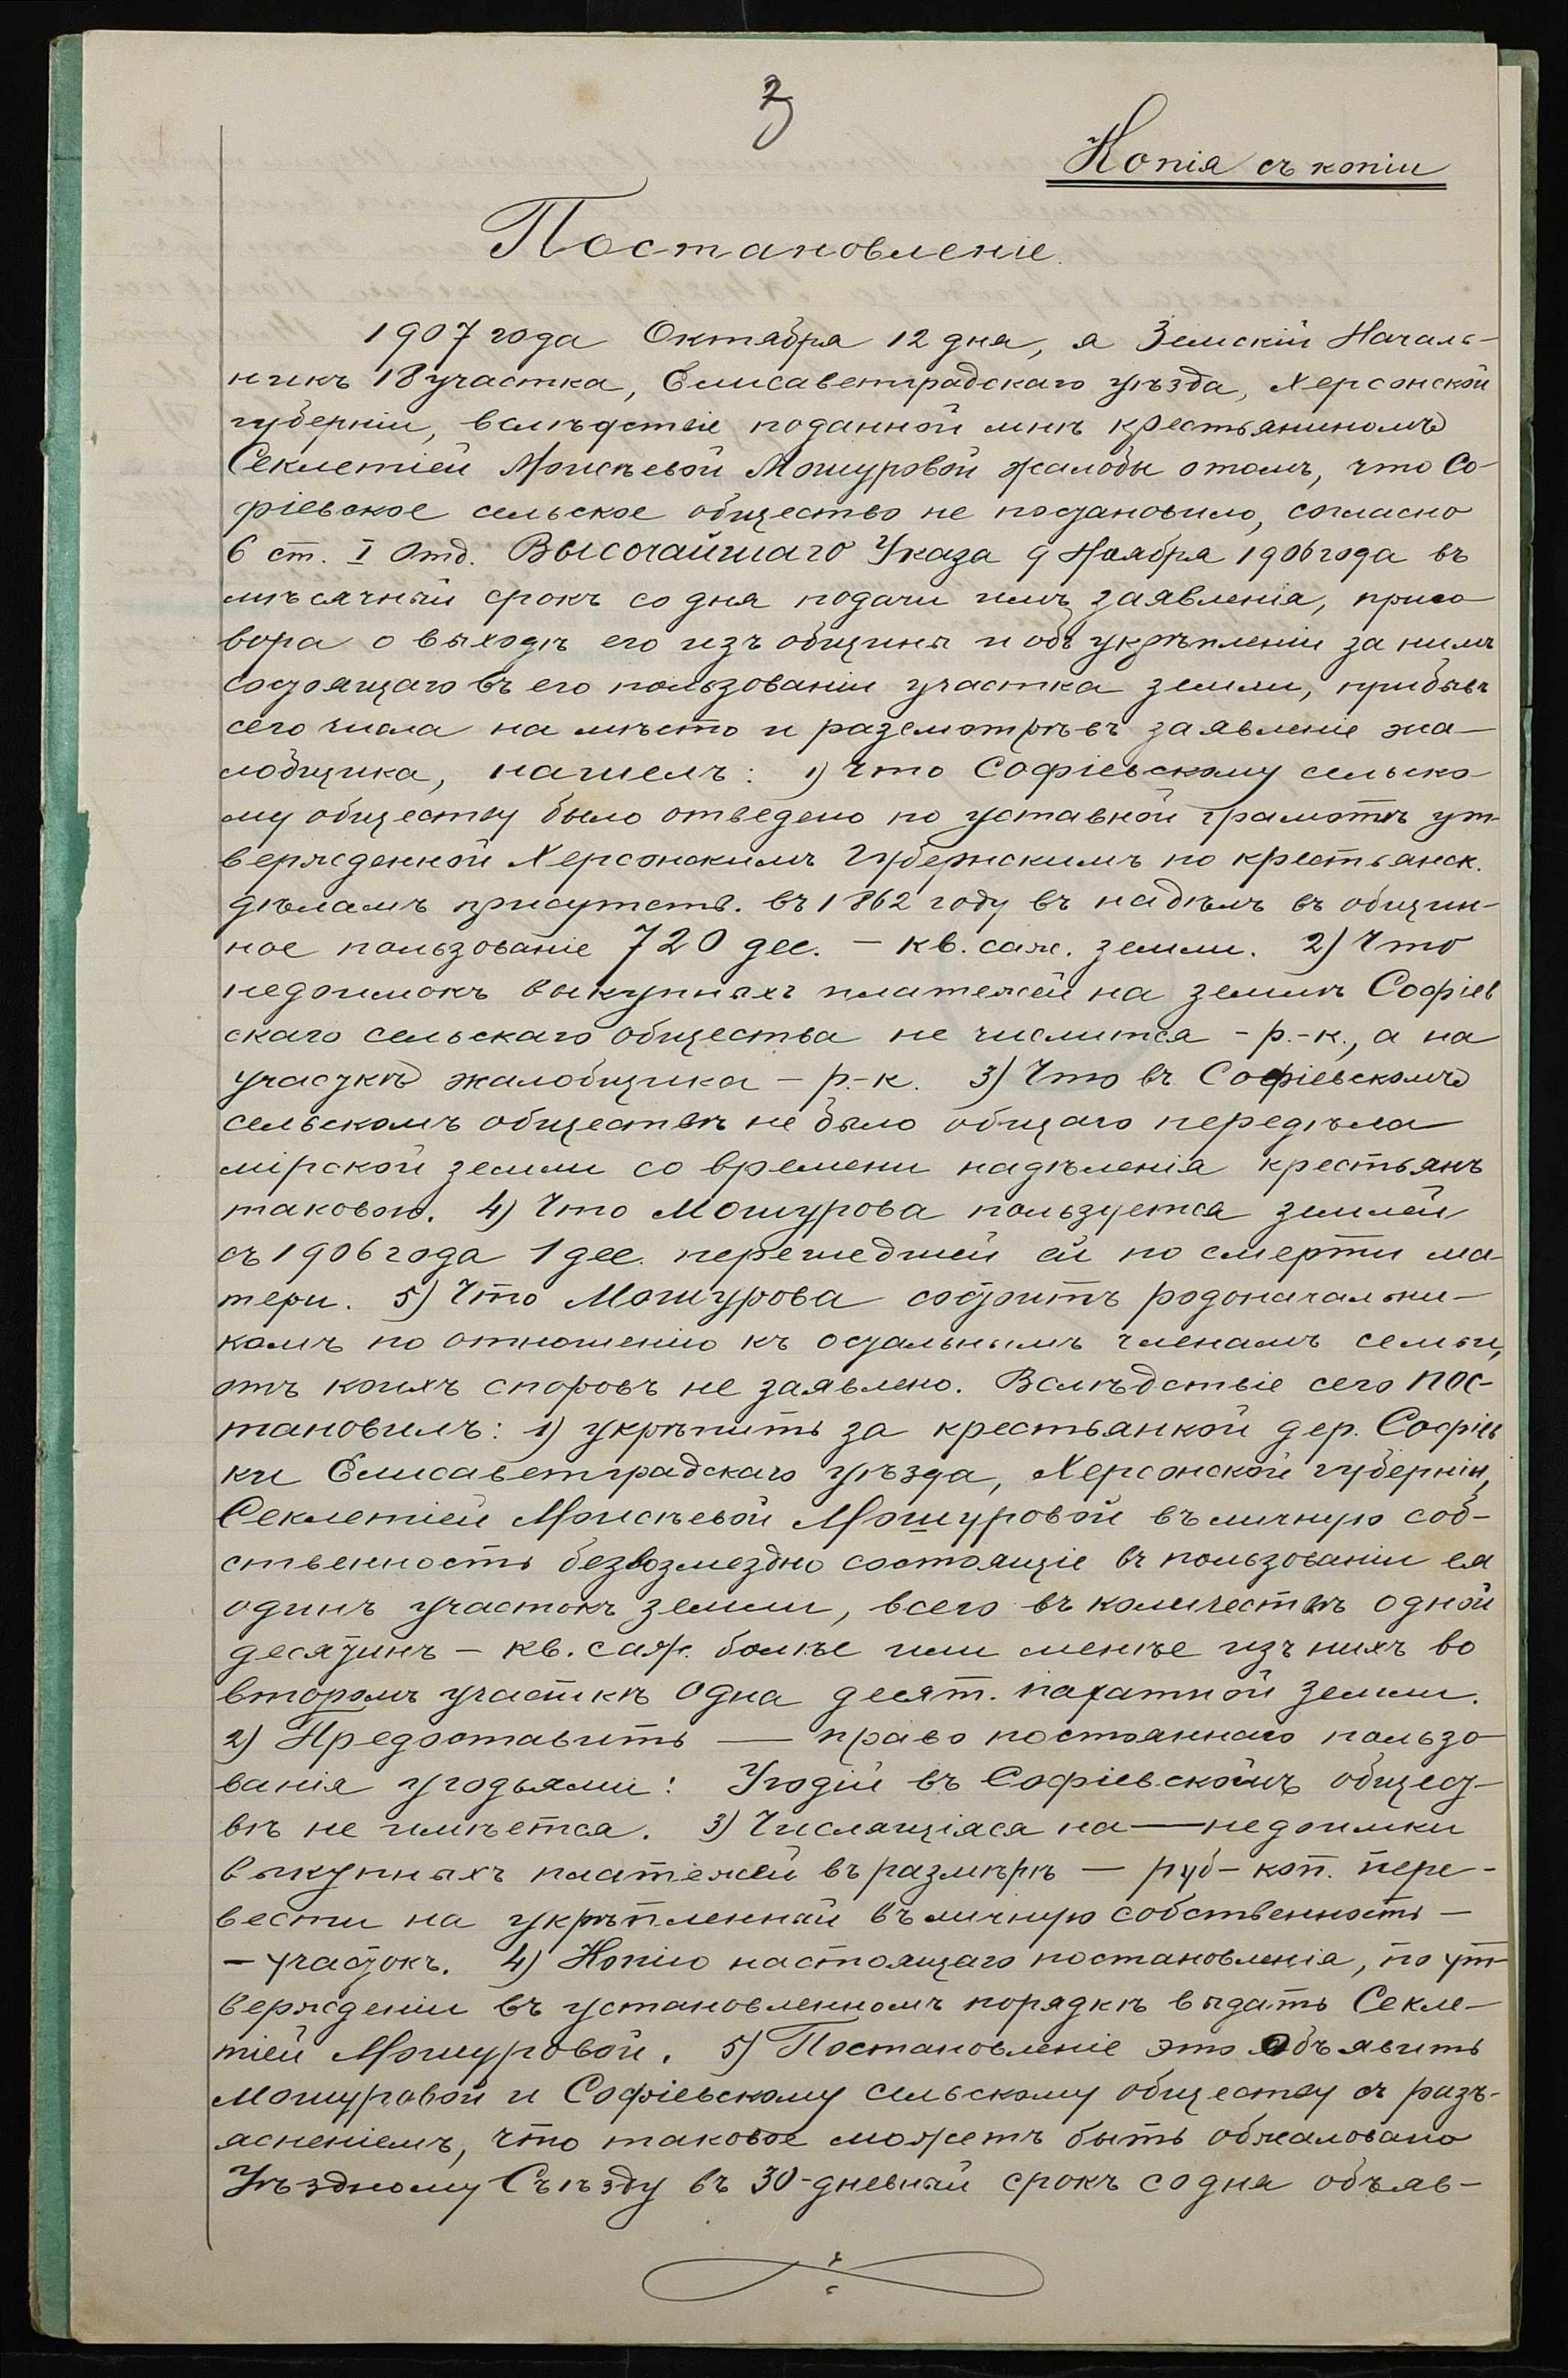 3
Копія съ копіи
Постановленіе.
1907 года Октября 12 дня, я Земскій Началь-
никъ 18 участка, Елисаветградскаго уѣзда, Херсонской
губерніи, вслѣдствіе поданной мнѣ крестьяниномъ
Секлетіей Моисѣевой Мошуровой жалобы отомъ, что Со-
фіевское сельское общество не постановило, согласно
6 ст. I Отд. Высочайшаго Указа 9 Ноября 1906 года въ
мѣсячный срокъ со дня подачи имъ заявленія, приго-
вора о выходѣ его изъ общины и объ укрѣпленіи за нимъ
состоящаго въ его пользованіи участка земли, прибывъ
сего числа на мѣсто и разсмотрѣвъ заявленіе жа-
лобщика, нашелъ: 1) Что Софіевскому сельско-
му обществу было отведено по уставной грамотѣ ут-
вержденной Херсонскимъ Губернскимъ по крестьянск.
дѣламъ присутств. въ 1862 году въ надѣлъ въ общин-
ное пользованіе 720 дес. – кв. саж. земли. 2) Что
недоимокъ выкупныхъ платежей на землѣ Софіев
скаго сельскаго общества не числится - р.-к., а на
участкѣ жалобщика – р.-к. 3) Что въ Софіевскомъ
сельскомъ обществѣ не было общаго передѣла
мірской земли со времени надѣленія крестьянъ
таковой. 4) Что Мошурова пользуется землей
съ 1906 года 1 дес. перешедшей ей по смерти ма-
тери. 5) Что Мошурова состоитъ родоначальни-
комъ по отношенію къ остальнымъ членамъ семьи,
отъ коихъ споровъ не заявлено. Вслѣдствіе сего пос-
тановилъ: 1) укрѣпить за крестьянкой дер. Софіев
ки Елисаветградскаго уѣзда, Херсонской губерніи,
Секлетіей Моисѣевой Мошуровой въ личную соб-
ственность безвозмездно состоящіе въ пользованіи ея
одинъ участокъ земли, всего въ количествѣ одной
десятинъ – кв. саж. болѣе или менѣе изъ нихъ во
второмъ участкѣ одна десят. пахатной земли.
2) Предоставить — право постояннаго пользо-
ванія угодьями: Угодій въ Софіевскомъ общест-
вѣ не имѣется. 3) Числящіяся на — недоимки
выкупныхъ платежей въ размѣрѣ – руб – коп. пере-
вести на укрѣпленный въ личную собственность –
– участокъ. 4) Копію настоящаго постановленія, по ут-
вержденіи въ установленномъ порядкѣ выдать Секле-
тіей Мошуровой. 5) Постановленіе это объявить
Мошуровой и Софіевскому сельскому обществу съ разъ-
ясненіемъ, что таковое можетъ быть обжаловано
Уѣздному Съѣзду въ 30-дневный срокъ со дня объяв-